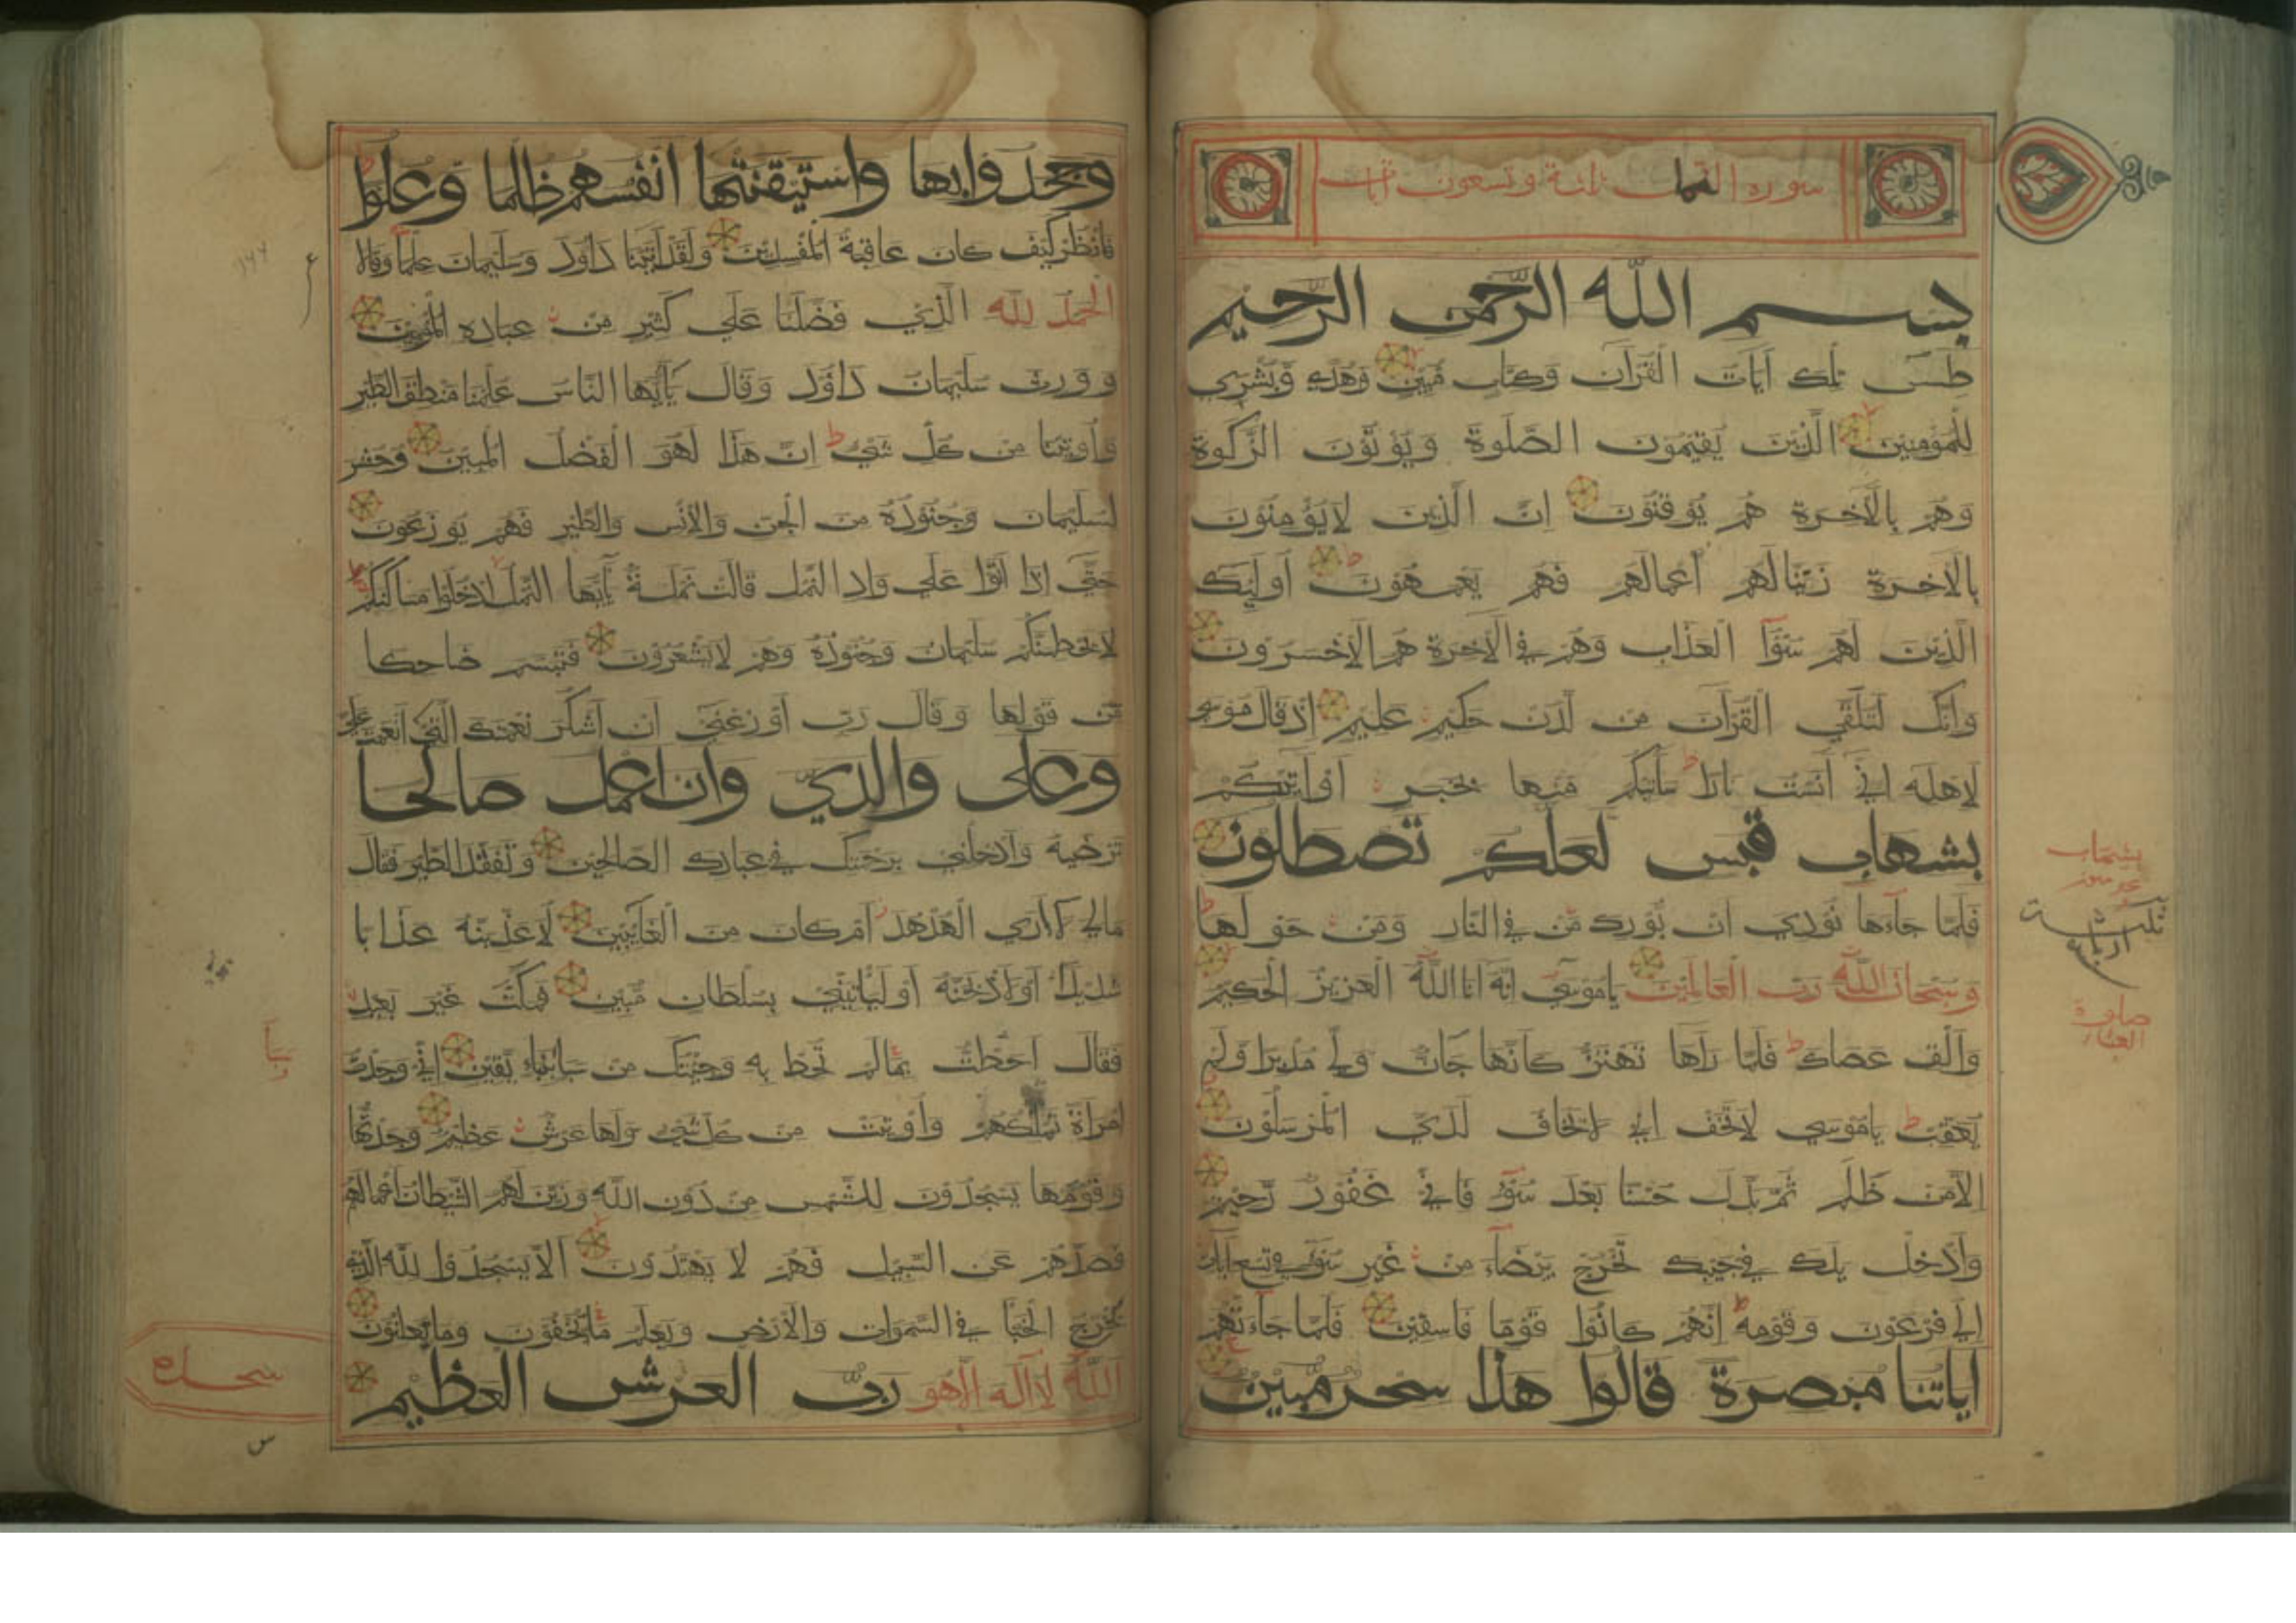 سورة النمل ثلثة وتسعون آيات
بسم الله الرحمن الرحيم
طس تلك آيات القرآن وكتاب مبين وهدى وبشرى
للمؤمنين الذين يقيمون الصلوة ويؤتون الزكوة
وهم بالآخرة هم يوقنون ان الذين لا يؤمنون
بالآخرة زينا لهم أعمالهم فهم يعمهون أولئك
الذين لهم سوٓء العذاب وهم في الآخرة هم الأخسرون
وانك لتلقي القرآن من لدن حكيم عليم إذ قال موسى
لاهله اني آنست نارا سآتيكم منها بخبر او آتيكم
بشهاب قبس لعلكم تصطلون
فلما جاءها نودي ان بورك من في النار ومن حولها
وسبحان الله رب العالمين ياموسى انه انا الله العزيز الحكيم
وألق عصاك فلما رآها تهتز كأنها جان ولي مدبرا ولم
يعقب ياموسي لا تخف اني لا يخاف لدي المرسلون
الا من ظلم ثم بدل حسنا بعد سوء فاني غفور رحيم
وادخل يدك في جيبك تخرج بيضاء من غير سوء في تسع ايات
الي فرعون وقومه إنهم كانوا قوما فاسقين فلما جاءتهم
اياتنا مبصرة قالوا هذا سحر مبين
بشهاب
صلوة
وجحدوا بها واستيقنتها انفسهم ظلما وعلوا
فانظر كيف كان عاقبة المفسدين ولقد آتينا داود وسليمان علما وقالا
الحمد لله الذي فضلنا علي كثير من عباده المؤمنين
وورث سليمان داود وقال يأيها الناس علمنا منطق الطير
وأوتينا من كل شئ ان هذا لهو الفضل المبين وحشر
لسليمان وجنوده من الجن والأنس والطير فهم يوزعون
حتي إذا أتوا علي واد النمل قالت نملة يأيها النمل ادخلوا مساكنكم
لا يحطمنكم سليمان وجنوده وهم لا يشعرون فتبسم ضاحكا
من قولها وقال رب أوزعني ان أشكر نعمتك التي أنعمت علي
وعلى والدي وان اعمل صالحا
ترضيه وادخلني برحمتك في عبادك الصالحين وتفقد الطير فقال
مالي لا اري الهدهد أم كان من الغائبين لأعذبنه عذابا
شديدا او لأذبحنه أو ليأتيني بسلطان مبين فمكث غير بعيد
فقال احطت بما لم تحط به وجئتك من سبأ بنباء يقين إني وجدت
امرأة تملكهم وأوتيت من كل شئ ولها عرش عظيم وجدتها
وقومها يسجدون للشمس من دون الله وزين لهم الشيطان أعمالهم
فصدهم عن السبيل فهم لا يهتدون ألا يسجدوا لله الذي
يخرج الخبأ في السموات والأرض ويعلم ما تخفون وما تعلنون
الله لا اله الا هو رب العرش العظيم
سجده
س